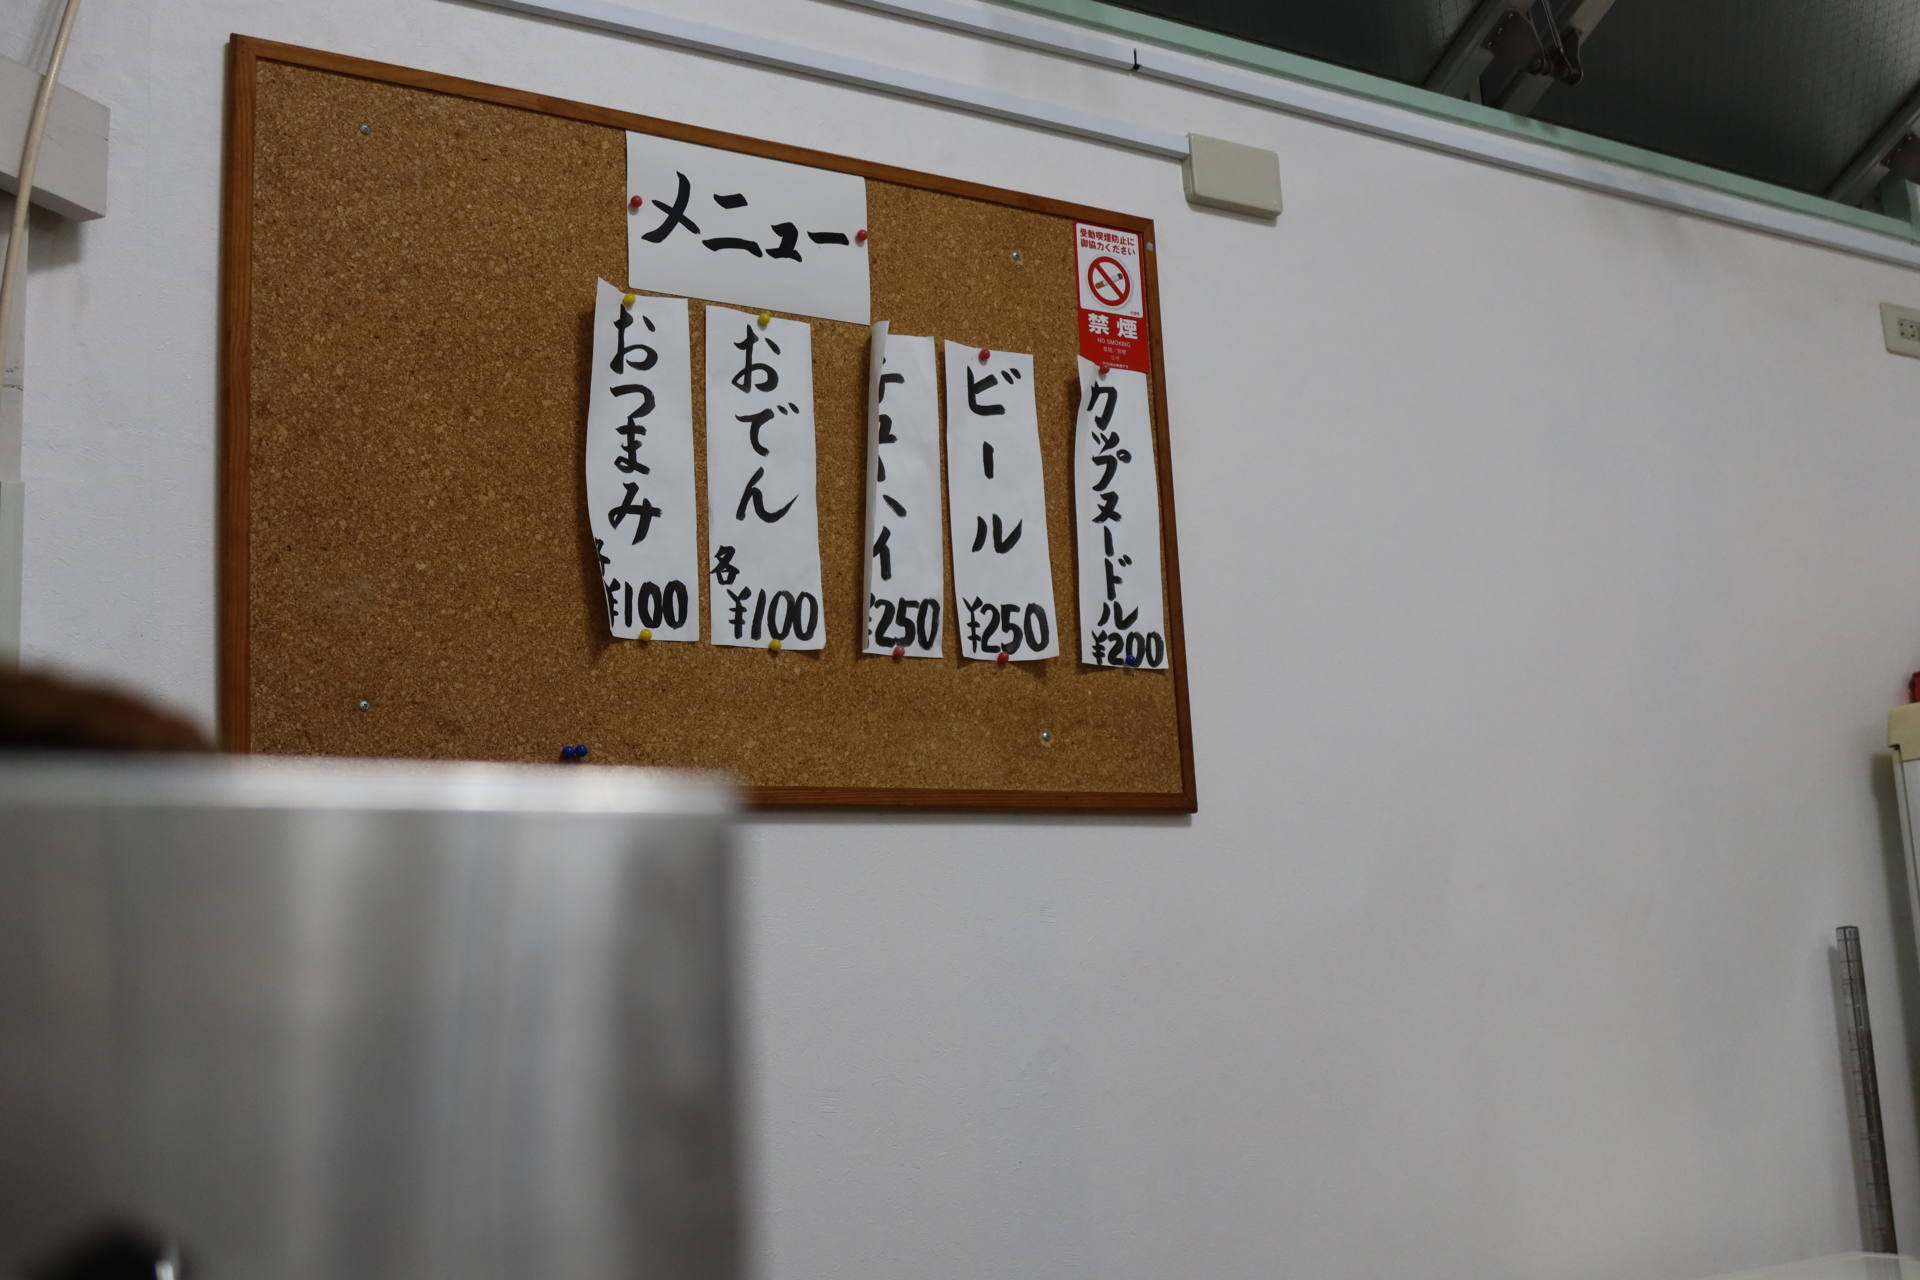 メニュー
受動喫煙防止に
御協力ください
禁煙
NO SMOKING
カップヌードル
¥200
ビール
¥250
チューハイ
¥250
おでん
各
¥100
おつまみ
各
¥100